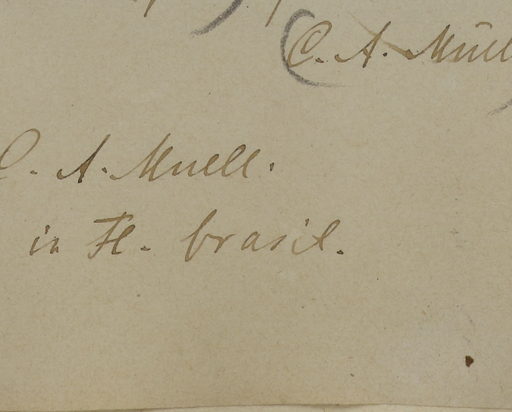 (C. A. Müell
C. A. Muell.
in Fl. brasil.